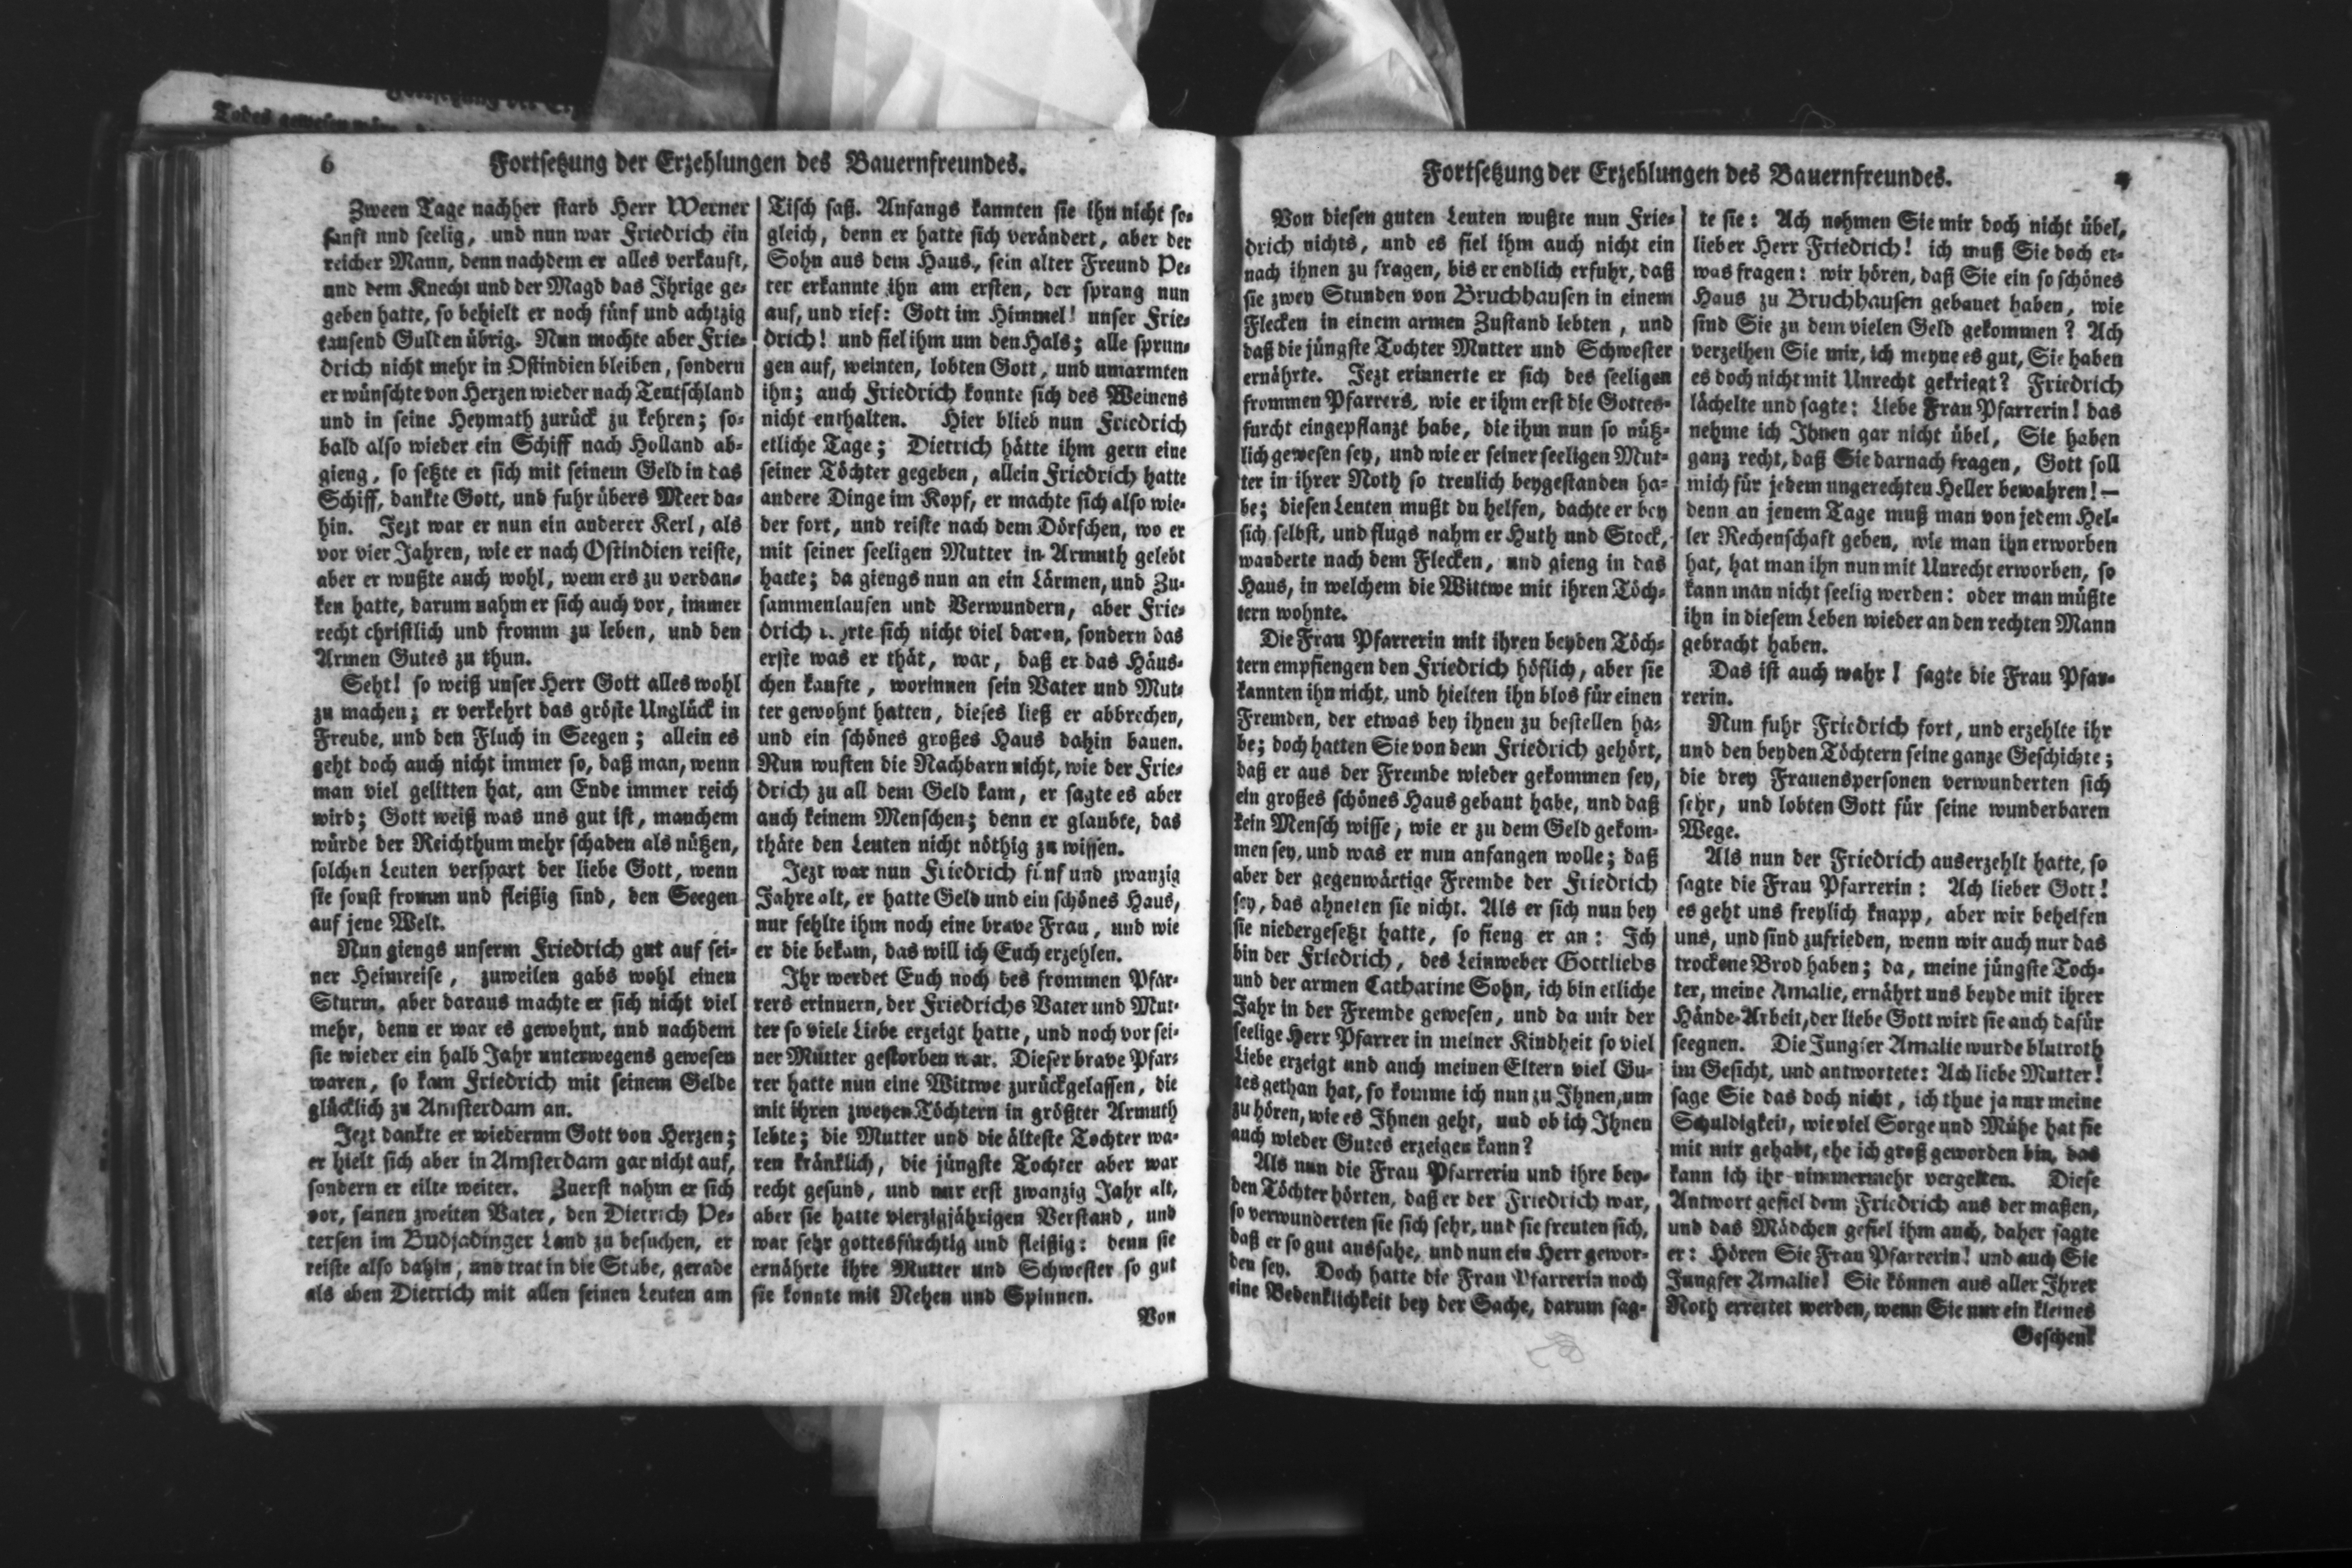 6 Fortsetzung der Erzehlungen des Bauernfreundes.
Zween Tage nachher starb Herr Werner
sanft und seelig, und nun war Friedrich ein
reicher Mann, denn nachdem er alles verkauft,
und dem Knecht und der Magd das Ihrige ge-
geben hatte, so behielt er noch fünf und achtzig
tausend Gulten übrig. Nun mochte aber Frie-
drich nicht mehr in Ostindien bleiben, sondern
er wünschte von Herzen wieder nach Teutschland
und in seine Heymath zurück zu kehren; so-
bald also wieder ein Schiff nach Holland ab-
gieng, so setzte er sich mit seinem Geld in das
Schiff, dankte Gott, und fuhr übers Meer da-
hin. Jezt war er nun ein anderer Kerl, als
vor vier Jahren, wie er nach Ostindien reiste,
aber er wußte auch wohl, wem ers zu verdan-
ken hatte, darum nahm er sich auch vor, immer
recht christlich und fromm zu leben, und den
Armen Gutes zu thun.
Seht! so weiß unser Herr Gott alles wohl
zu machen; er verkehrt das gröste Unglück in
Freude, und den Fluch in Seegen; allein es
geht doch auch nicht immer so, daß man, wenn
man viel gelitten hat, am Ende immer reich
wird; Gott weiß was uns gut ist, manchem
würde der Reichthum mehr schaden als nützen,
solchen Leuten verspart der liebe Gott, wenn
sie sonst fromm und fleißig sind, den Seegen
auf jene Welt.
Nun giengs unserm Friedrich gut auf sei-
ner Heimreise, zuweilen gabs wohl einen
Sturm, aber daraus machte er sich nicht viel
mehr, denn er war es gewohnt, und nachdem
sie wieder ein halb Jahr unterwegens gewesen
waren, so kam Friedrich mit seinem Gelde
glücklich zu Amsterdam an.
Jezt dankte er wiederum Gott von Herzen;
er hielt sich aber in Amsterdam gar nicht auf,
sondern er eilte weiter. Zuerst nahm er sich
vor, seinen zweiten Vater, den Dietrich Pe-
tersen im Budjadinger Land zu besuchen, er
reiste also dahin, und trat in die Stube, gerade
als eben Dietrich mit allen seinen Leuten am
Tisch saß. Anfangs kannten sie ihn nicht so-
gleich, denn er hatte sich verändert, aber der
Sohn aus dem Haus, sein alter Freund Pe-
ter erkannte ihn am ersten, der sprang nun
auf, und rief: Gott im Himmel! unser Frie-
drich! und fiel ihm um den Hals; alle sprun-
gen auf, weinten, lobten Gott, und umarmten
ihn; auch Friedrich konnte sich des Weinens
nicht enthalten. Hier blieb nun Friedrich
etliche Tage; Dietrich hätte ihm gern eine
seiner Töchter gegeben, allein Friedrich hatte
andere Dinge im Kopf, er machte sich also wie-
der fort, und reiste nach dem Dörfchen, wo er
mit seiner seeligen Mutter in Armuth gelebt
hatte; da giengs nun an ein Lärmen, und Zu-
sammenlaufen und Verwundern, aber Frie-
drich sich nicht viel daran, sondern das
erste was er thät, war, daß er das Häus-
chen kaufte, worinnen sein Vater und Mut-
ter gewohnt hatten, dieses ließ er abbrechen,
und ein schönes großes Haus dahin bauen.
Nun wusten die Nachbarn nicht, wie der Frie-
drich zu all dem Geld kam, er sagte es aber
auch keinem Menschen; denn er glaubte, das
thäte den Leuten nicht nöthig zu wissen.
Jezt war nun Friedrich fünf und zwanzig
Jahre alt, er hatte Geld und ein schönes Haus,
nur fehlte ihm noch eine brave Frau, und wie
er die bekam, das will ich Euch erzehlen.
Ihr werdet Euch noch des frommen Pfar-
rers erinnern, der Friedrichs Vater und Mut-
ter so viele Liebe erzeigt hatte, und noch vor sei-
ner Mutter gestorben war. Dieser brave Pfar-
rer hatte nun eine Wittwe zurückgelassen, die
mit ihren zweyen Töchtern in größter Armuth
lebte; die Mutter und die älteste Tochter wa-
ren kränklich, die jüngste Tochter aber war
recht gesund, und nur erst zwanzig Jahr alt,
aber sie hatte vierzigjährigen Verstand, und
war sehr gottesfürchtig und fleißig: denn sie
ernährte ihre Mutter und Schwester so gut
sie konnte mit Nehen und Spinnen.
Von
Fortsetzung der Erzehlungen des Bauernfreundes. 7
Von diesen guten Leuten wußte nun Frie-
drich nichts, und es fiel ihm auch nicht ein
nach ihnen zu fragen, bis er endlich erfuhr, daß
sie zwey Stunden von Bruchhausen in einem
Flecken in einem armen Zustand lebten, und
daß die jüngste Tochter Mutter und Schwester
ernährte. Jezt erinnerte er sich des seeligen
frommen Pfarrers, wie er ihm erst die Gottes-
furcht eingepflanzt habe, die ihm nun so nütz-
lich gewesen sey, und wie er seiner seeligen Mut-
ter in ihrer Noth so treulich beygestanden ha-
be; diesen Leuten mußt du helfen, dachte er bey
sich selbst, und flugs nahm er Huth und Stock,
wanderte nach dem Flecken, und gieng in das
Haus, in welchem die Wittwe mit ihren Töch-
tern wohnte.
Die Frau Pfarrerin mit ihren beyden Töch-
tern empfiengen den Friedrich höflich, aber sie
kannten ihn nicht, und hielten ihn blos für einen
Fremden, der etwas bey ihnen zu bestellen ha-
be; doch hatten Sie von dem Friedrich gehört,
daß er aus der Fremde wieder gekommen sey,
ein großes schönes Haus gebaut habe, und daß
kein Mensch wisse, wie er zu dem Geld gekom-
men sey, und was er nun anfangen wolle; daß
aber der gegenwärtige Fremde der Friedrich
sey, das ahneten sie nicht. Als er sich nun bey
sie niedergesetzt hatte, so fieng er an: Ich
bin der Friedrich, des Leinweber Gottliebs
und der armen Catharine Sohn, ich bin etliche
Jahr in der Fremde gewesen, und da mir der
seelige Herr Pfarrer in meiner Kindheit so viel
Liebe erzeigt und auch meinen Eltern viel Gu-
tes gethan hat, so komme ich nun zu Ihnen, um
zu hören, wie es Ihnen geht, und ob ich Ihnen
auch wieder Gutes erzeigen kann?
Als nun die Frau Pfarrerin und ihre bey-
den Töchter hörten, daß er der Friedrich war,
so verwunderten sie sich sehr, und sie freuten sich,
daß er so gut aussahe, und nun ein Herr gewor-
den sey. Doch hatte die Frau Pfarrerin noch
eine Bedenklichkeit bey der Sache, darum sag-
te sie: Ach nehmen Sie mir doch nicht übel,
lieber Herr Friedrich! ich muß Sie doch et-
was fragen: wir hören, daß Sie ein so schönes
Haus zu Bruchhausen gebauet haben, wie
sind Sie zu dem vielen Geld gekommen? Ach
verzeihen Sie mir, ich meyne es gut, Sie haben
es doch nicht mit Unrecht gekriegt? Friedrich
lächelte und sagte: Liebe Frau Pfarrerin! das
nehme ich Ihnen gar nicht übel, Sie haben
ganz recht, daß Sie darnach fragen, Gott soll
mich für jedem ungerechten Heller bewahren! —
denn an jenem Tage muß man von jedem Hel-
ler Rechenschaft geben, wie man ihn erworben
hat, hat man ihn nun mit Unrecht erworben, so
kann man nicht seelig werden: oder man müßte
ihn in diesem Leben wieder an den rechten Mann
gebracht haben.
Das ist auch wahr! sagte die Frau Pfar-
rerin.
Nun fuhr Friedrich fort, und erzehlte ihr
und den beyden Töchtern seine ganze Geschichte;
die drey Frauenspersonen verwunderten sich
sehr, und lobten Gott für seine wunderbaren
Wege.
Als nun der Friedrich auserzehlt hatte, so
sagte die Frau Pfarrerin: Ach lieber Gott!
es geht uns freylich knapp, aber wir behelfen
uns, und sind zufrieden, wenn wir auch nur das
trockene Brod haben; da, meine jüngste Toch-
ter, meine Amalie, ernährt uns beyde mit ihrer
Hände-Arbeit, der liebe Gott wird sie auch dafür
seegnen. Die Jungfer Amalie wurde blutroth
im Gesicht, und antwortete: Ach liebe Mutter!
sage Sie das doch nicht, ich thue ja nur meine
Schuldigkeit, wie viel Sorge und Mühe hat sie
mit mir gehabt, ehe ich groß geworden bin, das
kann ich ihr nimmermehr vergelten. Diese
Antwort gefiel dem Friedrich aus der maßen,
und das Mädchen gefiel ihm auch, daher sagte
er: Hören Sie Frau Pfarrerin! und auch Sie
Jungfer Amalie! Sie können aus aller Ihrer
Noth errettet werden, wenn Sie nur ein kleines
Geschenk